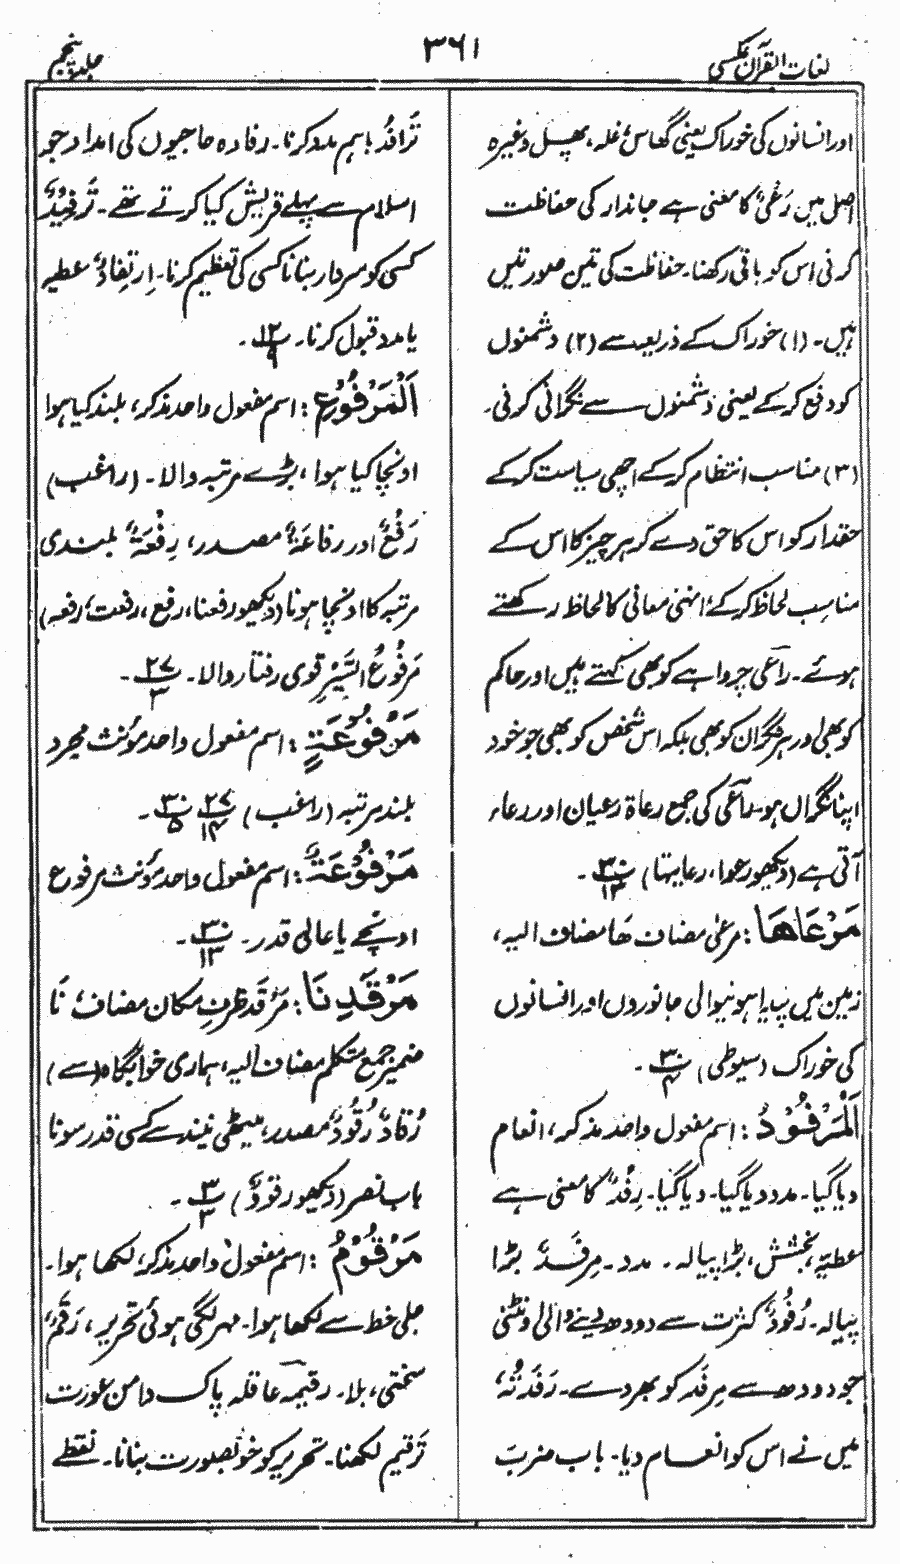 لغات القرآن عکسی
۳۶۱
جلد پنجم
اور انسانوں کی خوراک یعنی گھاس، غلہ، پھل وغیرہ
اصل میں رَعْیٌ کا معنی ہے جاندار کی حفاظت
کرنی اس کو باقی رکھنا۔ حفاظت کی تین صورتیں
ہیں۔ (۱) خوراک کے ذریعہ سے (۲) دشمنوں
کو دفع کر کے یعنی دشمنوں سے نگرانی کرنی۔
(۳) مناسب انتظام کر کے اچھی سیاست کر کے
حقدار کو اس کا حق دے کر ہر چیز کا اس کے
مناسب لحاظ کر کے، انہی معانی کا لحاظ رکھتے
ہوئے۔ راعی چرواہے کو بھی کہتے ہیں اور حاکم
کو بھی اور ہر نگران کو بھی بلکہ اس شخص کو بھی جو خود
اپنا نگراں ہو۔ راعی کی جمع رعاۃ رعیان اور رعاء
آتی ہے (دیکھو رعوا، رعایتہا) ۳۰/۱۳۔
مَرْعَاهَا: مرعٰی مضاف ھَا مضاف الیہ،
زمین میں پیدا ہونیوالی جانوروں اور انسانوں
کی خوراک (سیوطی) ۳۰/۴۔
اَلْمَرْفُوْدُ: اسم مفعول واحد مذکر، انعام
دیا گیا۔ مدد دیا گیا۔ دیا گیا۔ رِفْدٌ کا معنی ہے
عطیہ، بخشش، بڑا پیالہ۔ مدد۔ مِرفَدٌ بڑا
پیالہ۔ رُفُودٌ کثرت سے دودھ دینے والی اونٹنی
جو دودھ سے مِرفَد کو بھر دے۔ رَفَدْتُہٗ،
میں نے اس کو انعام دیا۔ باب ضربَ
تَرَافُدٌ باہم مدد کرنا۔ رفادہ حاجیوں کی امداد جو
اسلام سے پہلے قریش کیا کرتے تھے۔ تَرفِیْدٌ
کسی کو سردار بنانا کسی کی تعظیم کرنا۔ اِرتِفَادٌ عطیہ
یا مدد قبول کرنا۔ ۱۲/۹۔
اَلْمَرْفُوْعِ: اسم مفعول واحد مذکر، بلند کیا ہوا
اونچا کیا ہوا، بڑے مرتبہ والا۔ (راغب)
رَفْعٌ اور رفاعَۃٌ مصدر، رِفْعَۃٌ بلندی
مرتبہ کا اونچا ہونا (دیکھو رفعنا، رفع، رفعت، رفعہ)
مَرفُوعُ السَّیْرِ قوی رفتار والا۔ ۲۷/۳۔
مَرْفُوْعَةٍ: اسم مفعول واحد مؤنث مجرد
بلند مرتبہ (راغب) ۲۷/۱۴ ۳۰/۵۔
مَرْفُوْعَةٌ: اسم مفعول واحد مؤنث مرفوع
اونچے یا عالی قدر۔ ۳۰/۱۳۔
مَرْقَدِنَا: مَرْقَدِ ظرفِ مکان مضاف، نَا
ضمیر جمع متکلم مضاف الیہ، ہماری خوابگاہ (سے)
رُقَادٌ رُقُودٌ مصدر، میٹھی نیند سے کسی قدر سونا
باب نصر (دیکھو رقودٌ) ۲۳/۳۔
مَرْقُوْمٌ: اسم مفعول واحد مذکر، لکھا ہوا۔
جلی خط سے لکھا ہوا۔ مہر لگی ہوئی تحریر، رَقَمٌ،
سختی، بلا۔ رقیمہ عاقلہ پاک دامن عورت
تَرقِیم لکھنا۔ تحریر کو خوبصورت بنانا۔ نقطے